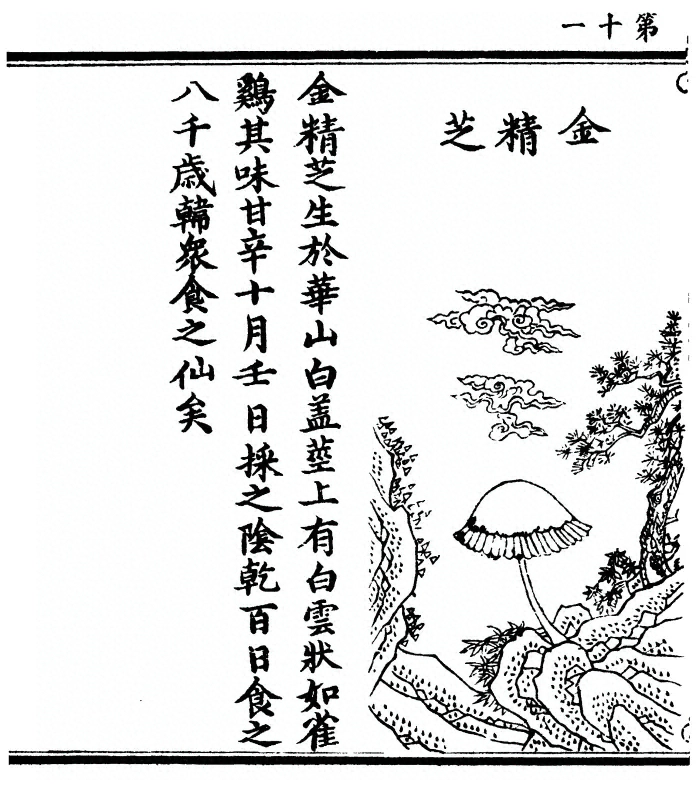 第十一
金精芝
金精芝生於華山白盖莖上有白雲狀如雀
鷄其味甘辛十月壬日採之陰乾百日食之
八千歳韓衆食之仙矣